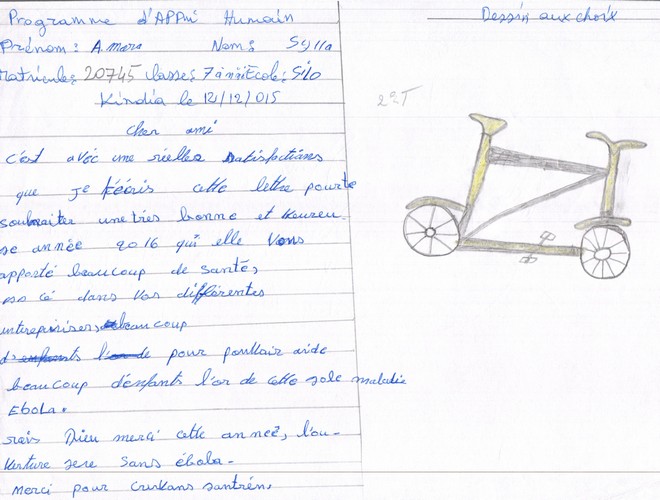 Programme d'APPui Humain
Prénom : Amara Nom : Sylla
Matricule, 20745 classe, 7 année Ecole, Silo
Kindia le 12/12/015
Cher ami
C'est avec une réelle satisfactions
que je t'écris cette lettre pour te
souhaiter une très bonne et heureu-
se année 2016 qui elle Vous
apporté beaucoup de santés
dans vos différentes
entreprises, beaucoup
pour pouvoir aide
beaucoup d'enfants l'or de cette sale maladie
Ebola.
mais Dieu merci cette année, l'ou-
verture sera sans ébola.
merci pour
Dessin aux choix